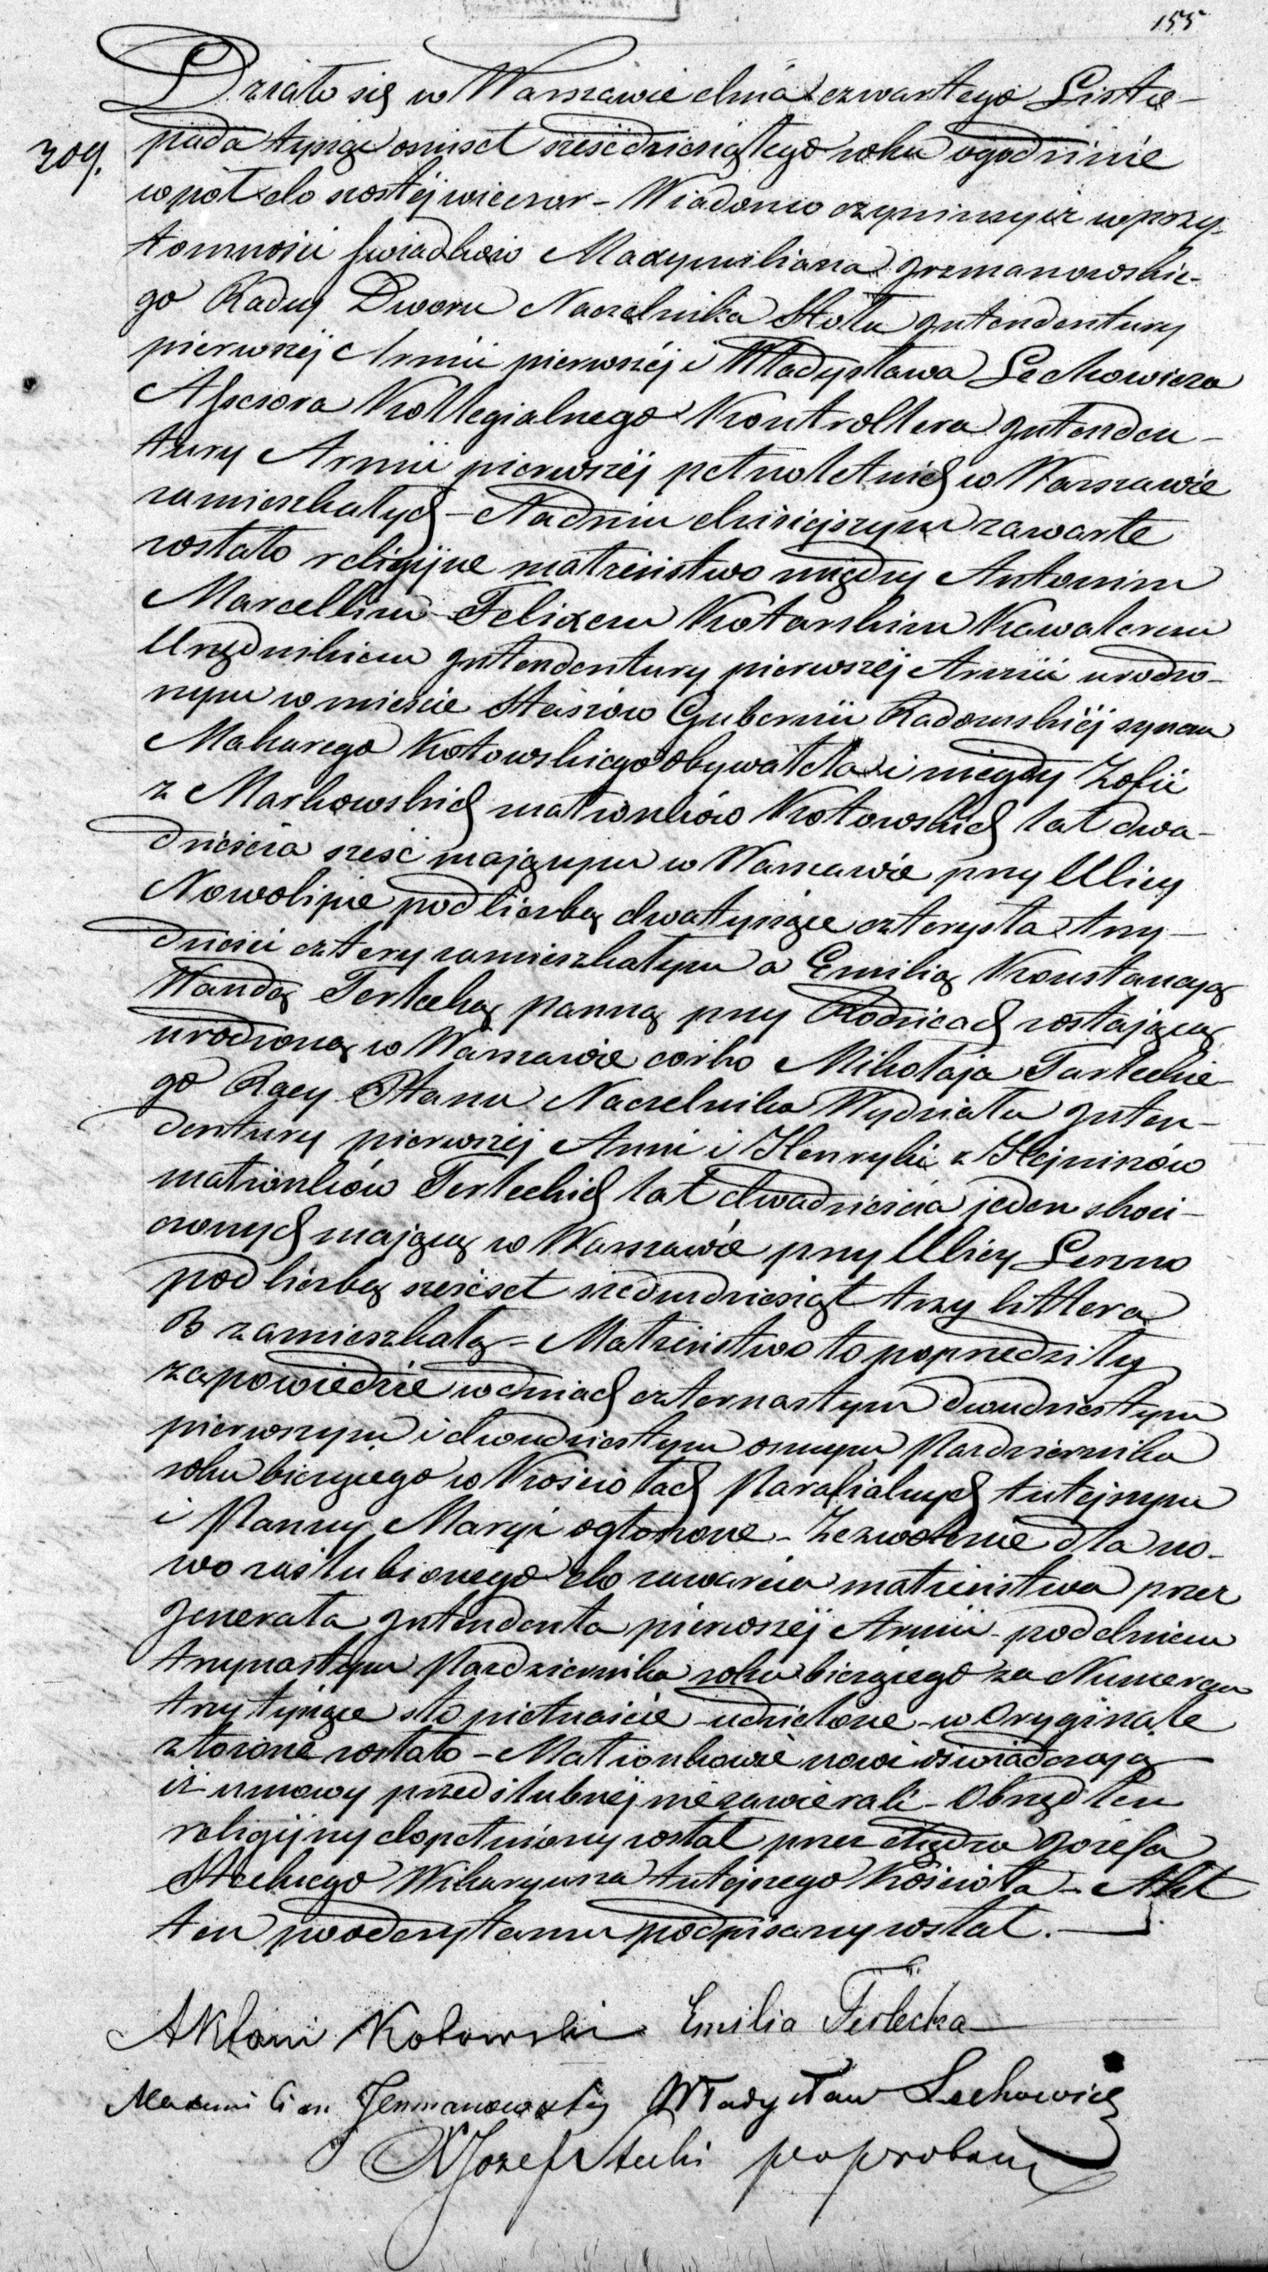 155
309.
Działo się w Warszawie dnia czwartego Listo-
pada tysiąc ośmset sześćdziesiątego roku o godzinie
w pół do szóstéj wieczor – Wiadomo czyniemy iż w przy-
tomności świadków Maxymiliana Jermanowskie-
go Radcy Dworu Naczelnika Stołu Intendentury
pierwszéj Armii pierwszéj i Władysława Lechowicza
Assessora Kollegialnego Kontrollera Intenden-
tury Armii pierwszéj pełnoletnich w Warszawie
zamieszkałych – Na dniu dzisiejszym zawarte
zostało religijne małżeństwo między Antonim
Marcellim Felixem Kotarskim Kawalerem
Urzędnikiem Intendentury pierwszéj Armii urodzo-
nym w mieście Staszów Gubernii Radomskiéj synem
Makarego Kotowskiego Obywatela i między Zofii
z Markowskich małżonków Kotowskich lat dwa-
dzieścia sześć mającym w Warszawie przy Ulicy
Nowolipie pod liczbą dwa tysiące czterysta trzy-
dzieści cztery zamieszkałym a Emilią Konstancyą
Wandą Terlecką panną przy Rodzicach zostającą
urodzoną w Warszawie córko Mikołaja Terleckie-
go Racy Stanu Naczelnika Wydziału Inten-
dentury pierwszéj Armi i Henryki z Hejninzów
małżonków Terleckich lat dwadzieścia jeden skoń-
czonych mającą w Warszawie przy Ulicy Leszno
pod liczbą sześćset siedmdziesiąt trzy littera
B zamieszkałą – Małżeństwo to poprzedziły
zapowiedzie w dniach czternastym dwudziestym
pierwszym i dwudziestym ósmym Października
roku bieżącego w Kościołach Parafialnych tutejszym
i Panny Maryi ogłoszone – Zezwolenie dla no-
wo zaślubionego do zawarcia małżeństwa przez
Jenerała Intendenta pierwszéj Armii pod dniem
trzynastym Października roku bieżącego za Numerem
trzy tysiące sto piętnaście udzielone – w Oryginale
złożone zostało – Małżonkowie nowi oświadczają
iż umowy przedślubnéj nie zawierali – Obrzęd ten
religijny dopełniony został przez Xiędza Józefa
Steckiego Wikaryusza tutejszego Kościoła – Akt
ten po odczytaniu podpisany został. –
Antoni Kotowski Emilia Terlecka
Maxymilian Jermanowski Władysław Lechowicz
X Józef Stecki